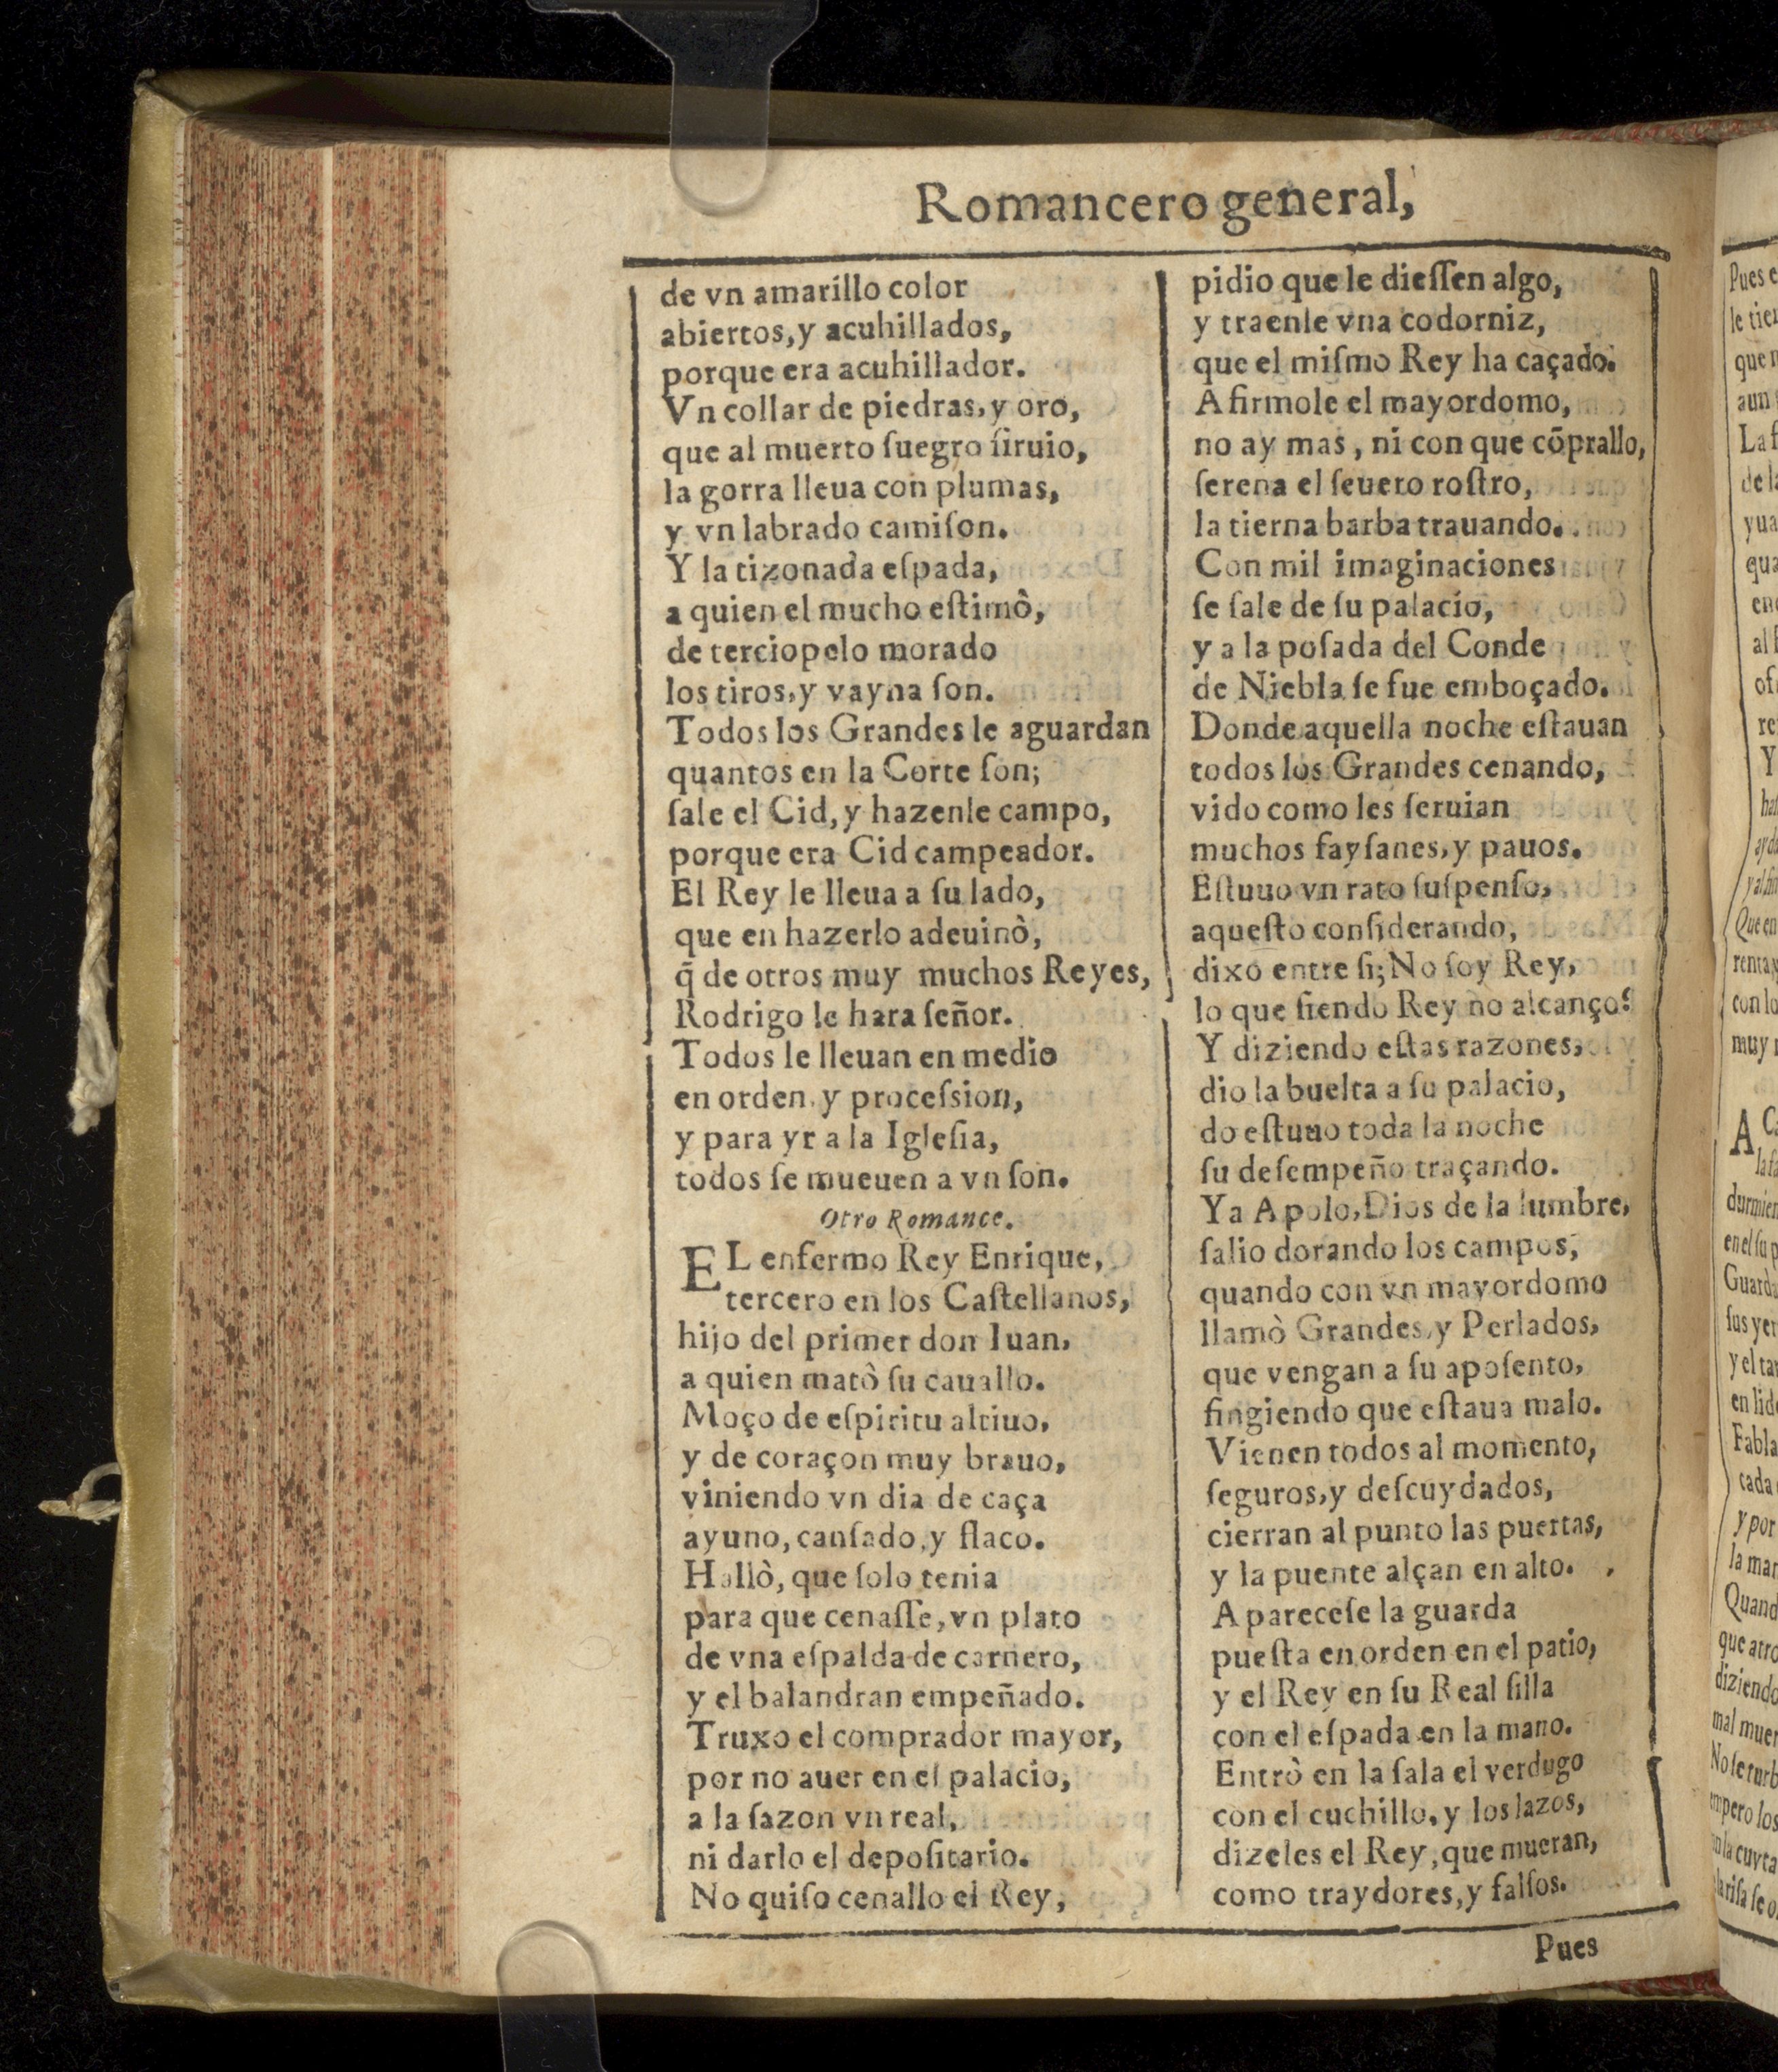 Romancero general,
de vn amarillo color
abiertos, y acuhillados,
porque era acuhillador.
Vn collar de piedras, y oro,
que al muerto ſuegro ſiruio,
la gorra lleua con plumas,
y vn labrado camiſon.
Y la tizonada eſpada,
a quien el mucho eſtimò,
de terciopelo morado
los tiros, y vayna ſon.
Todos los Grandes le aguardan
quantos en la Corte ſon;
ſale el Cid, y hazenle campo,
porque era Cid campeador.
El Rey le lleua a ſu lado,
que en hazerlo adeuinò,
q̃ de otros muy muchos Reyes,
Rodrigo le hara ſeñor.
Todos le lleuan en medio
en orden, y proceſsion,
y para yr a la Igleſia,
todos ſe mueuen a vn ſon.
Otro Romance.
EL enfermo Rey Enrique,
tercero en los Caſtellanos,
hijo del primer don Iuan,
a quien matò ſu cauallo.
Moço de eſpiritu altiuo,
y de coraçon muy brauo,
viniendo vn dia de caça
ayuno, canſado, y flaco.
Hallò, que ſolo tenia
para que cenaſſe, vn plato
de vna eſpalda de carnero,
y el balandran empeñado.
Truxo el comprador mayor,
por no auer en el palacio,
a la ſazon vn real,
ni darlo el depoſitario.
No quiſo cenallo el Rey,
pidio que le dieſſen algo,
y traenle vna codorniz,
que el miſmo Rey ha caçado.
Afirmole el mayordomo,
no ay mas, ni con que cõprallo,
ſerena el ſeuero roſtro,
la tierna barba trauando.
Con mil imaginaciones
ſe ſale de ſu palacio,
y a la poſada del Conde
de Niebla ſe fue emboçado.
Donde aquella noche eſtauan
todos los Grandes cenando,
vido como les ſeruian
muchos fayſanes, y pauos.
Eſtuuo vn rato ſuſpenſo,
aqueſto conſiderando,
dixo entre ſi; No ſoy Rey,
lo que ſiendo Rey no alcanço?
Y diziendo eſtas razones,
dio la buelta a ſu palacio,
do eſtuuo toda la noche
ſu deſempeño traçando.
Ya Apolo, Dios de la lumbre,
ſalio dorando los campos,
quando con vn mayordomo
llamò Grandes, y Perlados,
que vengan a ſu apoſento,
fingiendo que eſtaua malo.
Vienen todos al momento,
ſeguros, y deſcuydados,
cierran al punto las puertas,
y la puente alçan en alto.
Apareceſe la guarda
pueſta en orden en el patio,
y el Rey en ſu Real ſilla
con el eſpada en la mano.
Entrò en la ſala el verdugo
con el cuchillo, y los lazos,
dizeles el Rey, que mueran,
como traydores, y falſos.
Pues